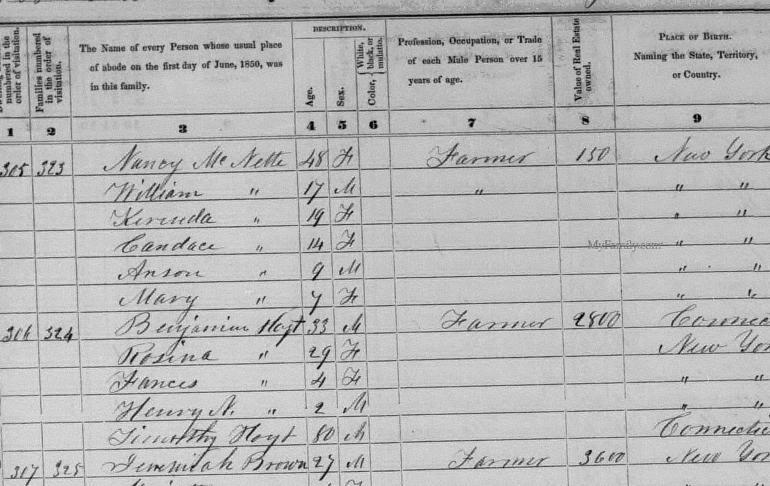 DESCRIPTION.
numbered in the order of visitation.
Families numbered in the order of visitation.
The Name of every Person whose usual place of abode on the first day of June, 1850, was in this family.
Age.
Sex.
Color, { White, black, or mulatto.
Profession, Occupation, or Trade of each Male Person over 15 years of age.
Value of Real Estate owned.
PLACE OF BIRTH. Naming the State, Territory, or Country.
1 2 3 4 5 6 7 8 9
305 323 Nancy McNette 48 F Farmer 150 New York
William " 17 M " " "
" 19 F " "
Candace " 14 F " "
MyFamily.com
Anson " 9 M " "
Mary " 7 F " "
306 324 Benjamin Hoyt 33 M Farmer 2800 Connec
Rosina " 29 F New Yor
Frances " 4 F " "
Henry N. " 2 M " "
Timothy Hoyt 80 M Connectic
307 325 Jeremiah Brown 27 M Farmer 3600 New York